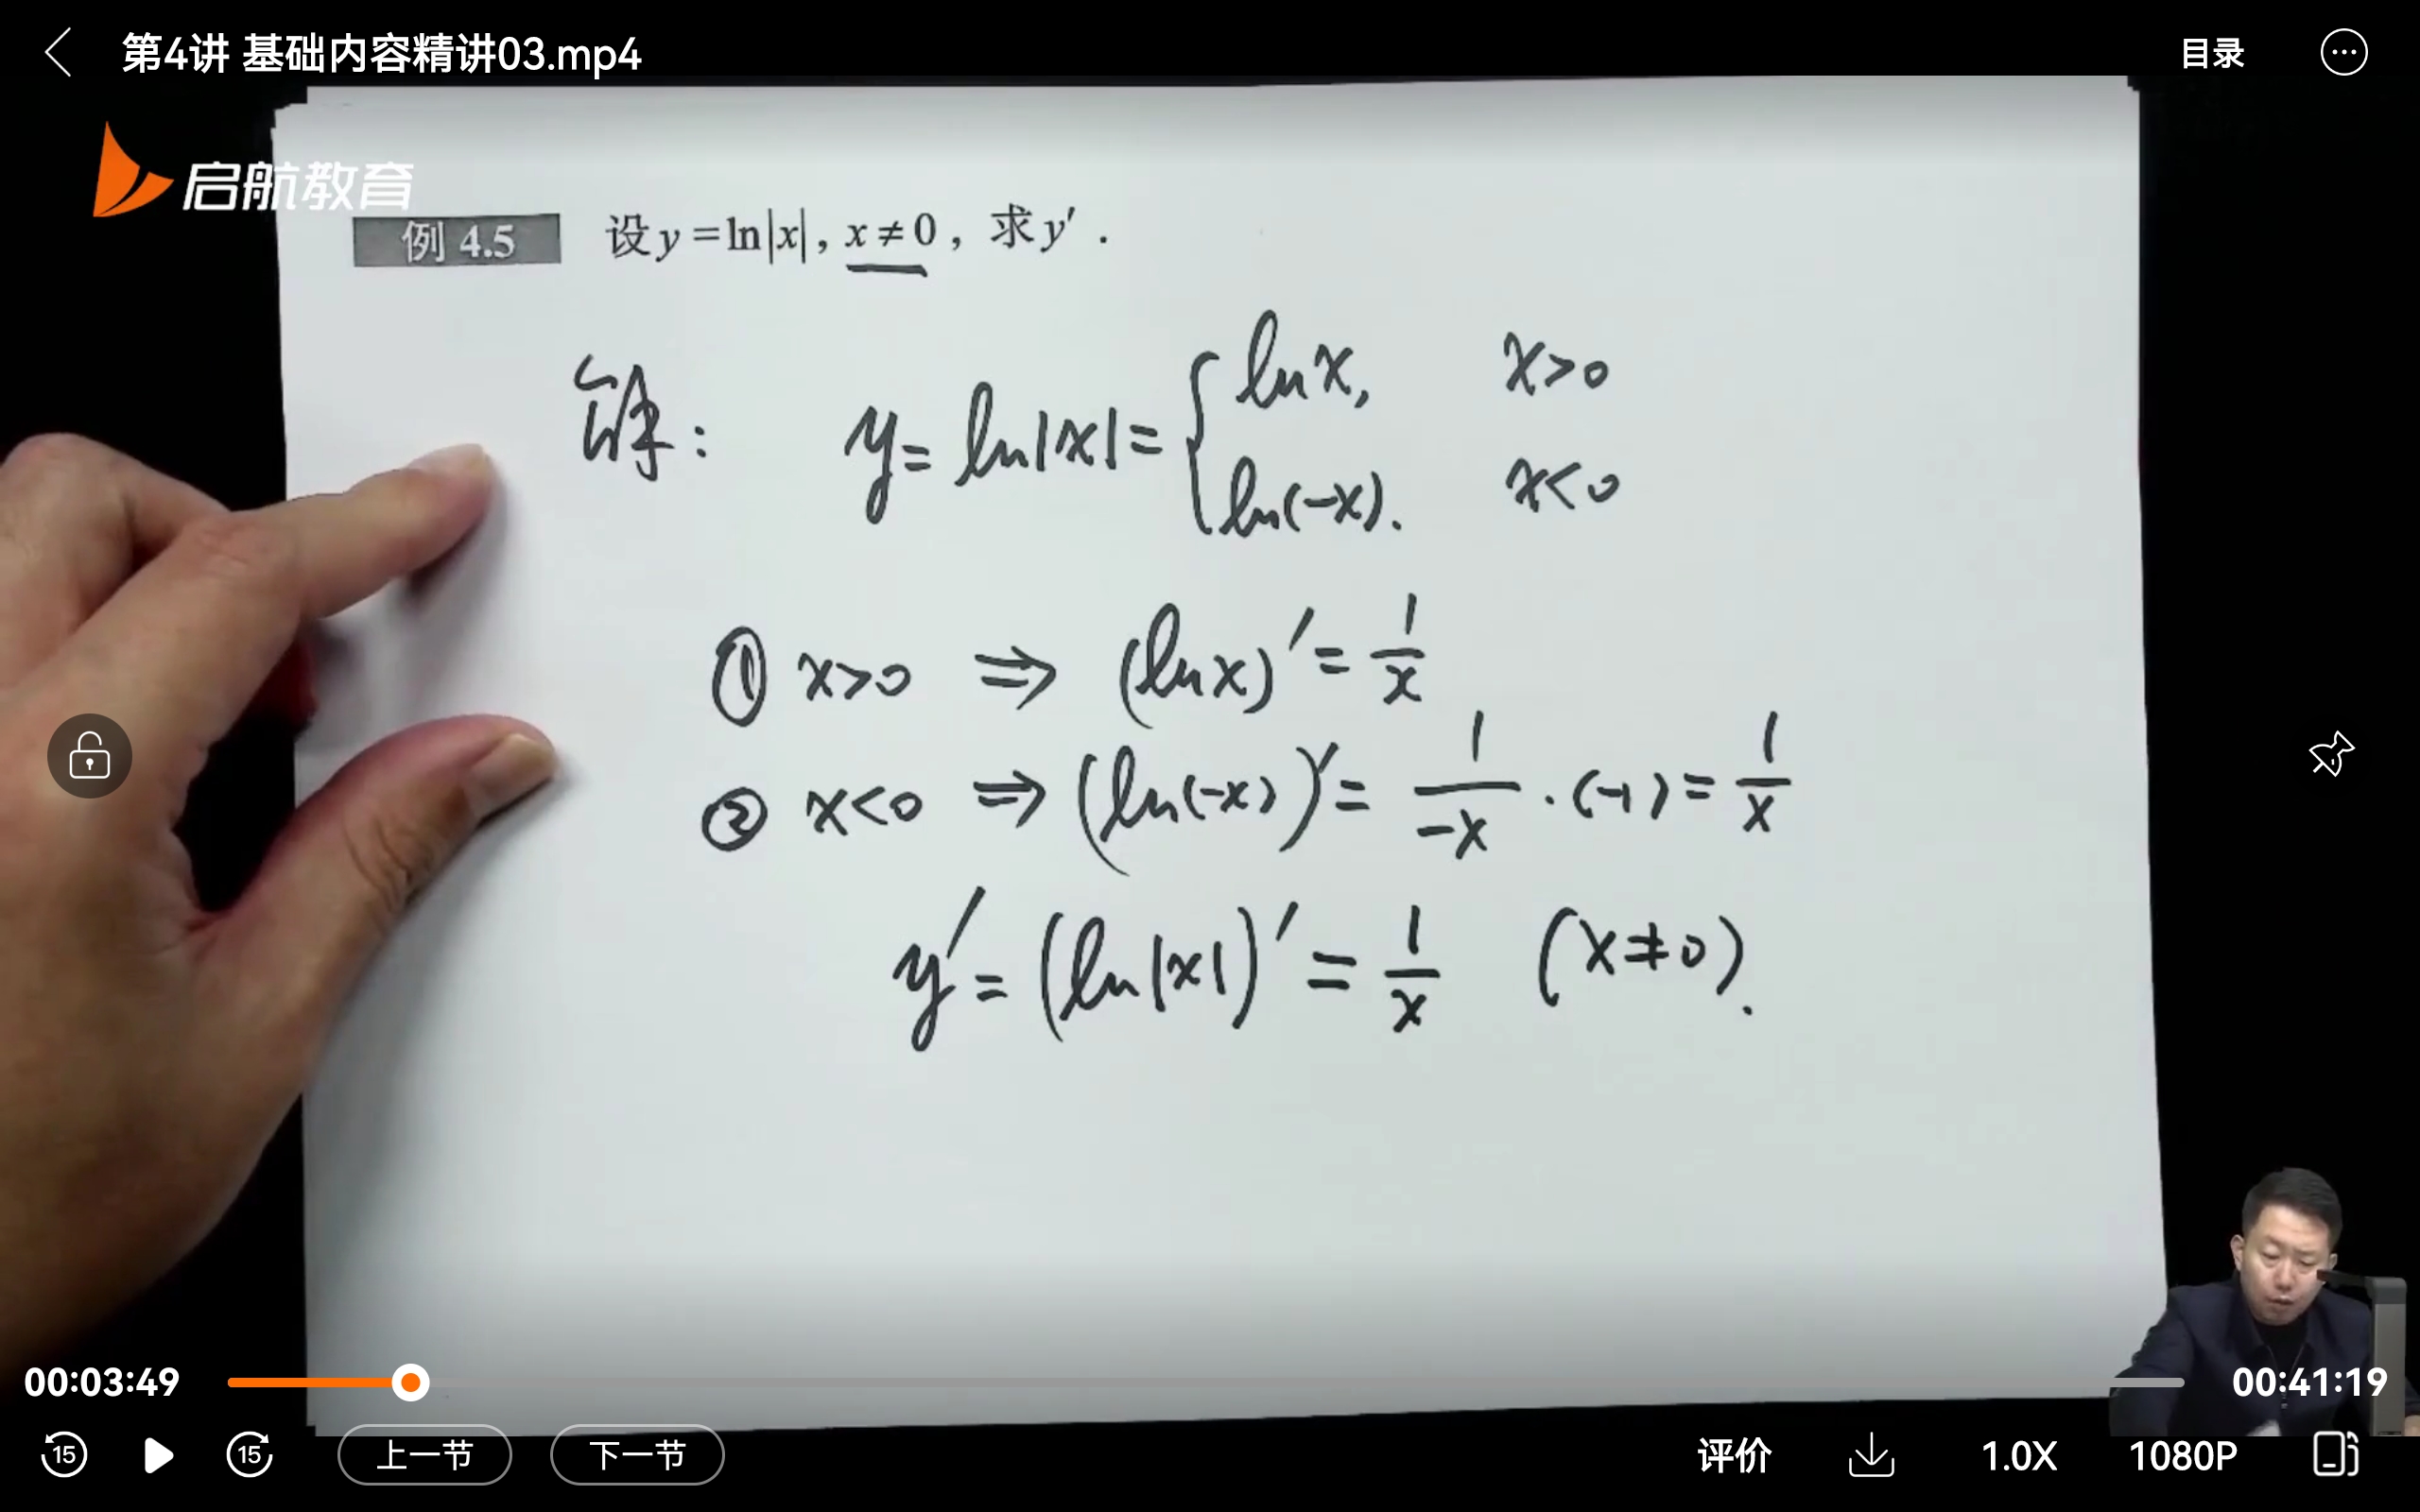 第4讲 基础内容精讲03.mp4
目录
启航教育
例 4.5 设y=ln|x|, x≠0, 求y'.
解: y=ln|x|={lnx, x>0
ln(-x). x<0
① x>0 ⇒ (lnx)'=1/x
② x<0 ⇒ (ln(-x))'=1/-x·(-1)=1/x
y'=(ln|x|)'=1/x (x≠0).
00:03:49
00:41:19
15
15
上一节
下一节
评价
1.0X
1080P